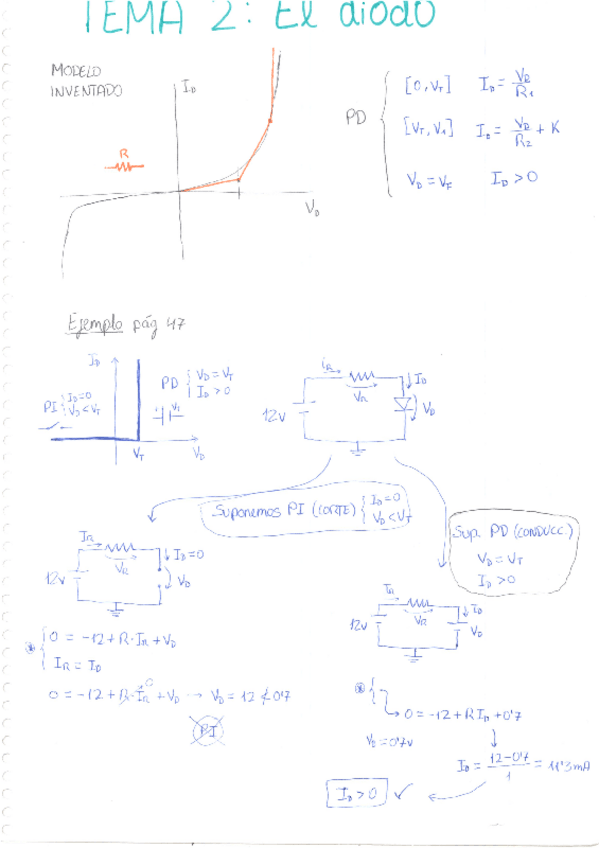 TEMA 2: El diodo
MODELO
INVENTADO
I_D
R
V_D
PD
[0, V_T] I_D = V_D/R_1
[V_T, V_1] I_D = V_D/R_2 + K
V_D = V_F I_D > 0
Ejemplo pág 47
I_D
PI { I_D=0
V_D<V_T
PD { V_D = V_T
I_D > 0
V_T
V_T
V_D
i_R
V_R
I_D
V_D
12V
Suponemos PI (CORTE) { I_D=0
V_D<V_T
Sup. PD (CONDUCC)
V_D = V_T
I_D > 0
I_R
V_R
I_D=0
V_D
12V
I_R
V_R
I_D
V_D
12V
* { 0 = -12 + R·I_R + V_D
I_R = I_D
0 = -12 + R·I_R⁰ + V_D → V_D = 12 ≮ 0'7
PI
* {
→ 0 = -12 + R I_D + 0'7
V_D = 0'7V
I_D = 12-0'7/1 = 11'3mA
I_D > 0 ✓